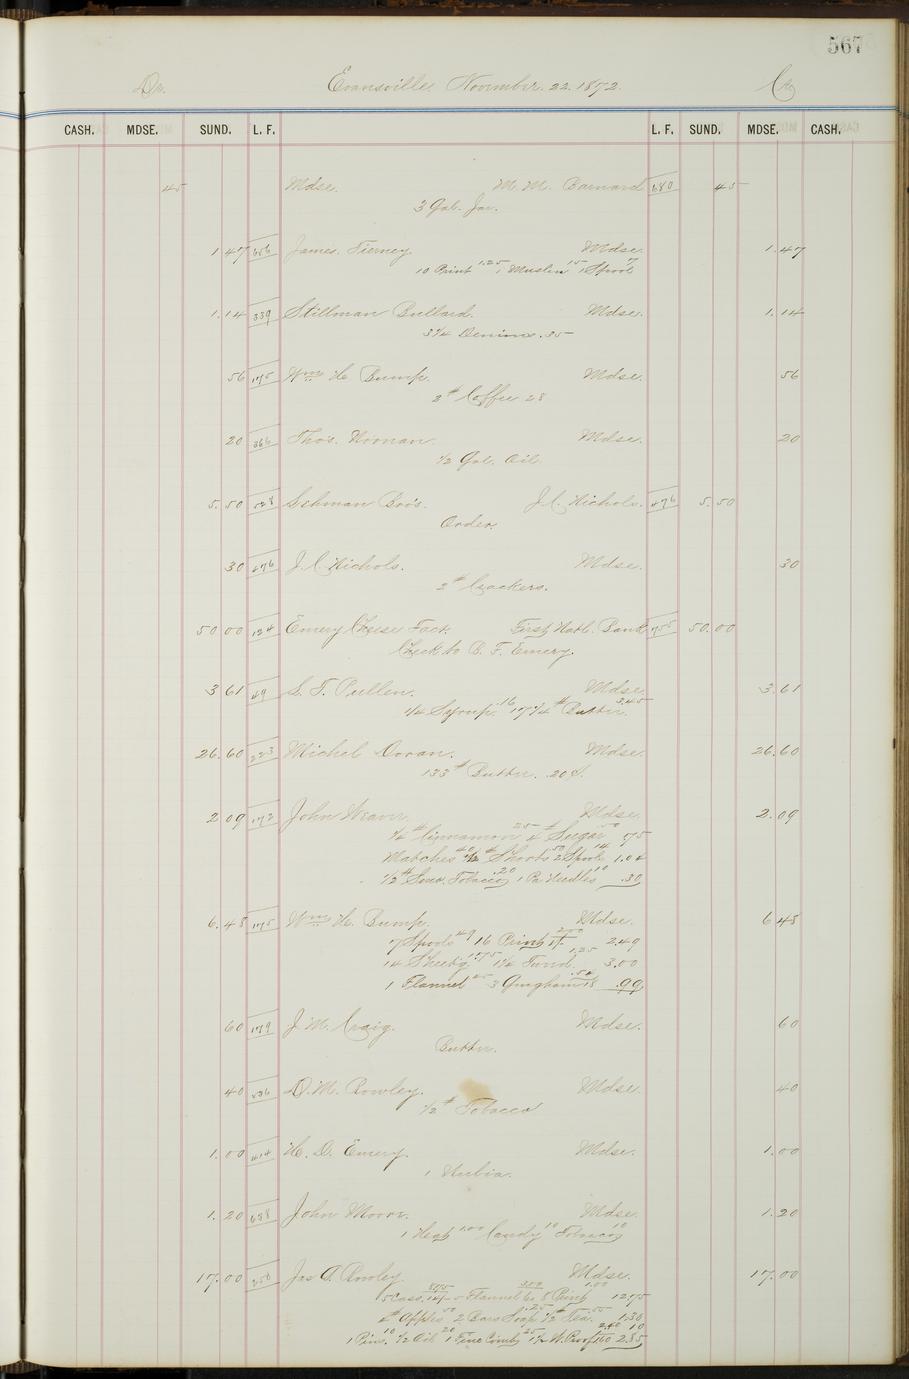 567
Dr. Evansville November. 22. 1872. Cr.
CASH. MDSE. SUND. L. F. L. F. SUND. MDSE. CASH.
45 Mdse. M. M. Barnard 680 45
3 Gal. Jar.
1.47 656 James. Tierney. Mdse. 1.47
10 Print 1.25 1 Muslin 15 1 Spool 7
1.14 339 Stillman Bullard. Mdse. 1.14
3 1/4 Denims .35
56 175 Wm H. Bump. Mdse. 56
2# Coffee 28
20 366 Thos. Noonan. Mdse. 20
1/2 Gal. Oil.
5.50 528 Lehman Bro's. J. C. Nichols. 476 5.50
Order.
30 476 J. C. Nichols. Mdse. 30
2# Crackers.
50 00 124 Emery Cheese Fact. First Natl. Bank 755 50.00
Check to B. F. Emery.
3 61 49 S. T. Pullen. Mdse. 3.61
1/4 Syrup. .16 17 1/4# Butter. 3.45
26.60 223 Michel Doran. Mdse. 26.60
133# Butter. .20¢.
2 09 172 John Weaver. Mdse. 2.09
1/4# Cinnamon 25 4# Sugar 50 75
Matches 40 1/2# Shorts 50 2 Spools 14 1.04
1/2# Tobacco .20 1 Pa Needles 10 .30
6.48 175 Wm H. Bump. Mdse. 6 48
7 Spools 49 16 Print 2.00 2.49
14 Sheetg 1.75 1.25 3.00
1 Flannel 45 3 Gingham 18 .54 .99
60 179 J. M. Craig. Mdse. 60
Butter.
40 536 D. M. Rowley. Mdse. 40
1/2# Tobacco
1.00 414 H. D. Emery. Mdse. 1.00
1 Nubia.
1.20 688 John Moore. Mdse. 1.20
1.00 Candy 10 Tobacco 10
17.00 250 Jas A. Rowley. Mdse. 17.00
5 Flannel 8 Print 1.00 12.75
# Apples 50 2 Bars Soap .25 1/2# Tea. .55 1.30
1 Pins. 10 1/2 Oil 20 1 Fine Comb 25 W. Proof 2.85